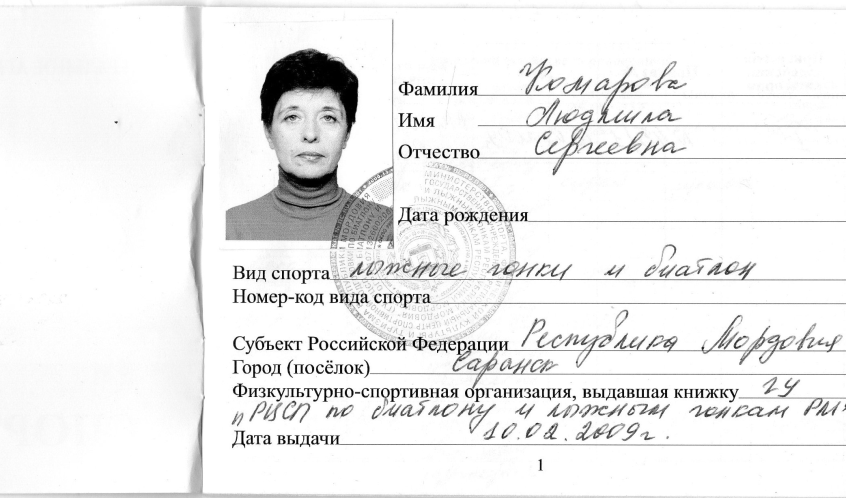 Фамилия Комарова
Имя Людмила
Отчество Сергеевна
Дата рождения
Вид спорта лыжные гонки и биатлон
Номер-код вида спорта
Субъект Российской Федерации Республика Мордовия
Город (посёлок) Саранск
Физкультурно-спортивная организация, выдавшая книжку ГУ
"РЦСП по биатлону и лыжным гонкам РМ"
Дата выдачи 10.02.2009г.
1